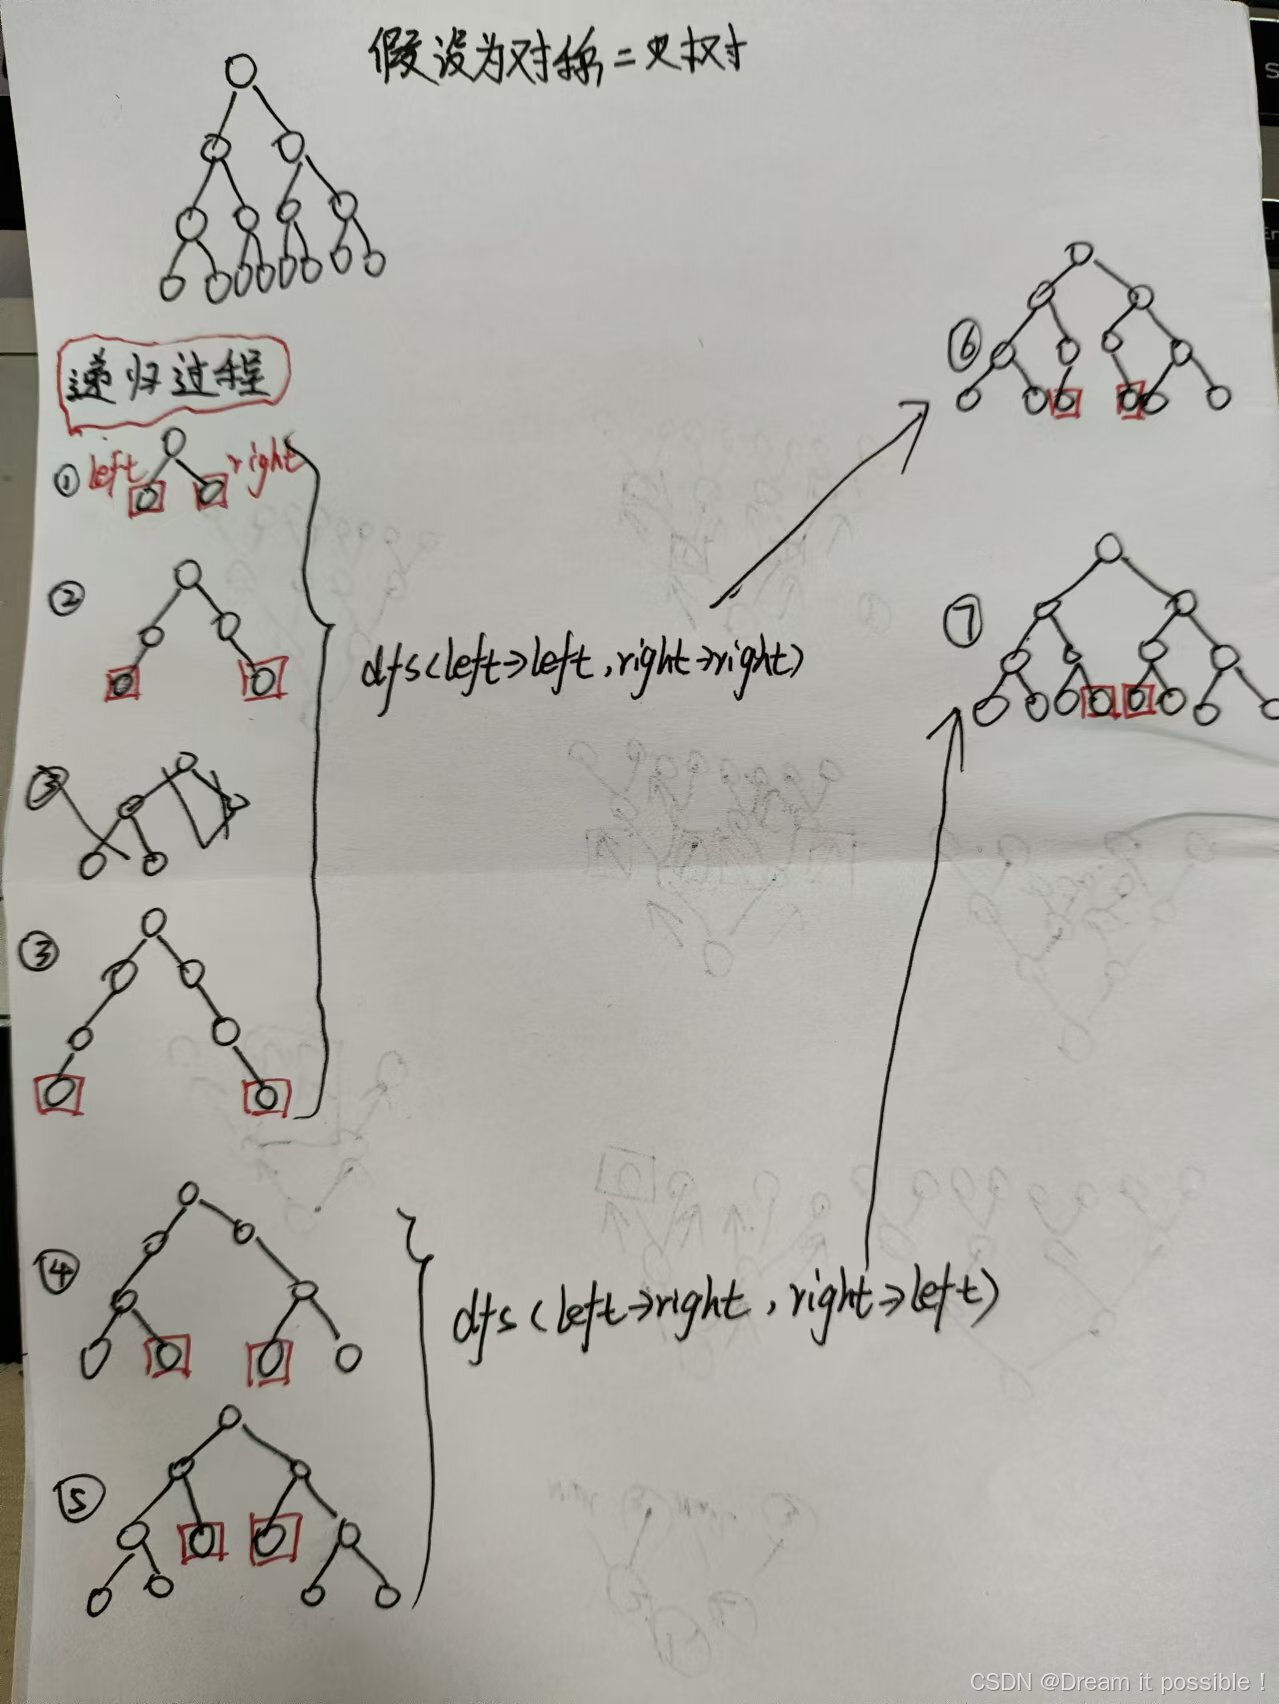 假设为对称二叉树
递归过程
① left right
②
dfs(left->left, right->right)
③
③
④
dfs(left->right, right->left)
⑤
⑥
⑦
CSDN @Dream it possible !